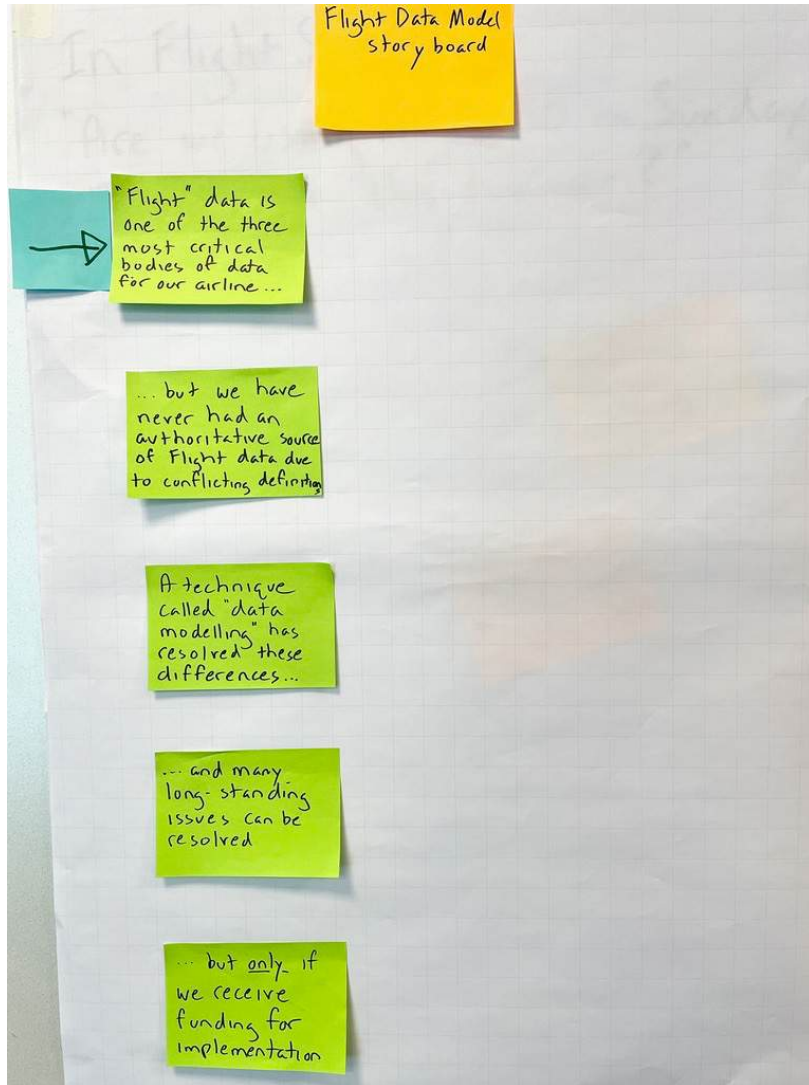 Flight Data Model
story board
In Flight
"Are we
Sunday
"Flight" data is
one of the three
most critical
bodies of data
for our airline...
... but we have
never had an
authoritative source
of Flight data due
to conflicting definitions
A technique
called "data
modelling" has
resolved these
differences...
... and many
long-standing
issues can be
resolved
... but only if
we receive
funding for
implementation